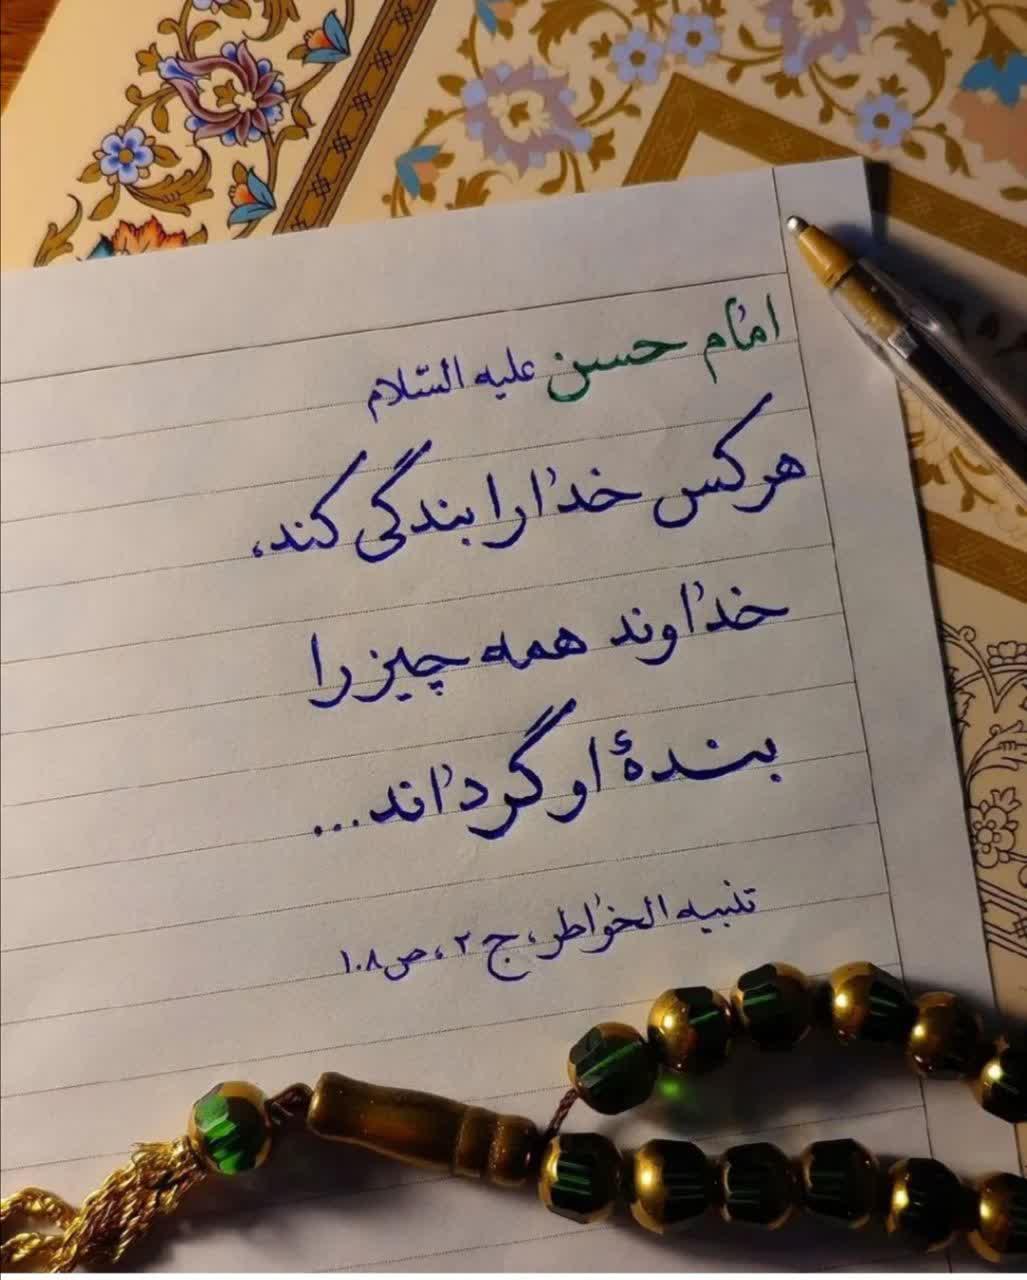 امام حسن علیه السّلام
هر کس خدا را بندگی کند،
خداوند همه چیز را
بندۀ او گرداند...
تنبیه الخواطر، ج ۲، ص ۱۰۸